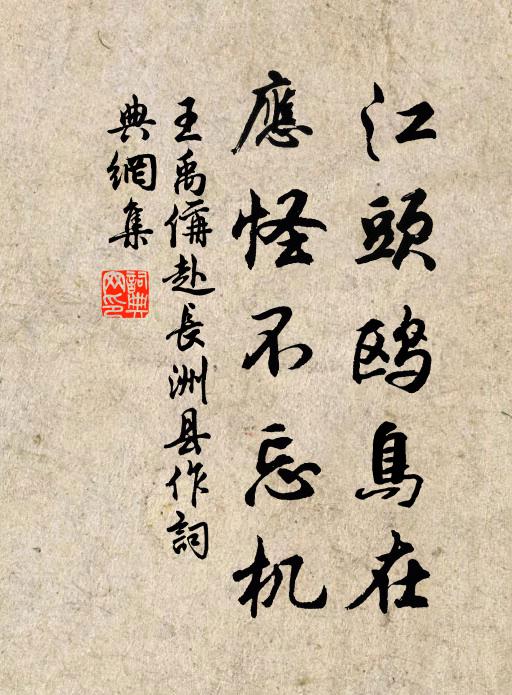 江頭鸥鳥在
應怪不忘机
王禹偁赴長洲县作詞
典網集
詞典网印